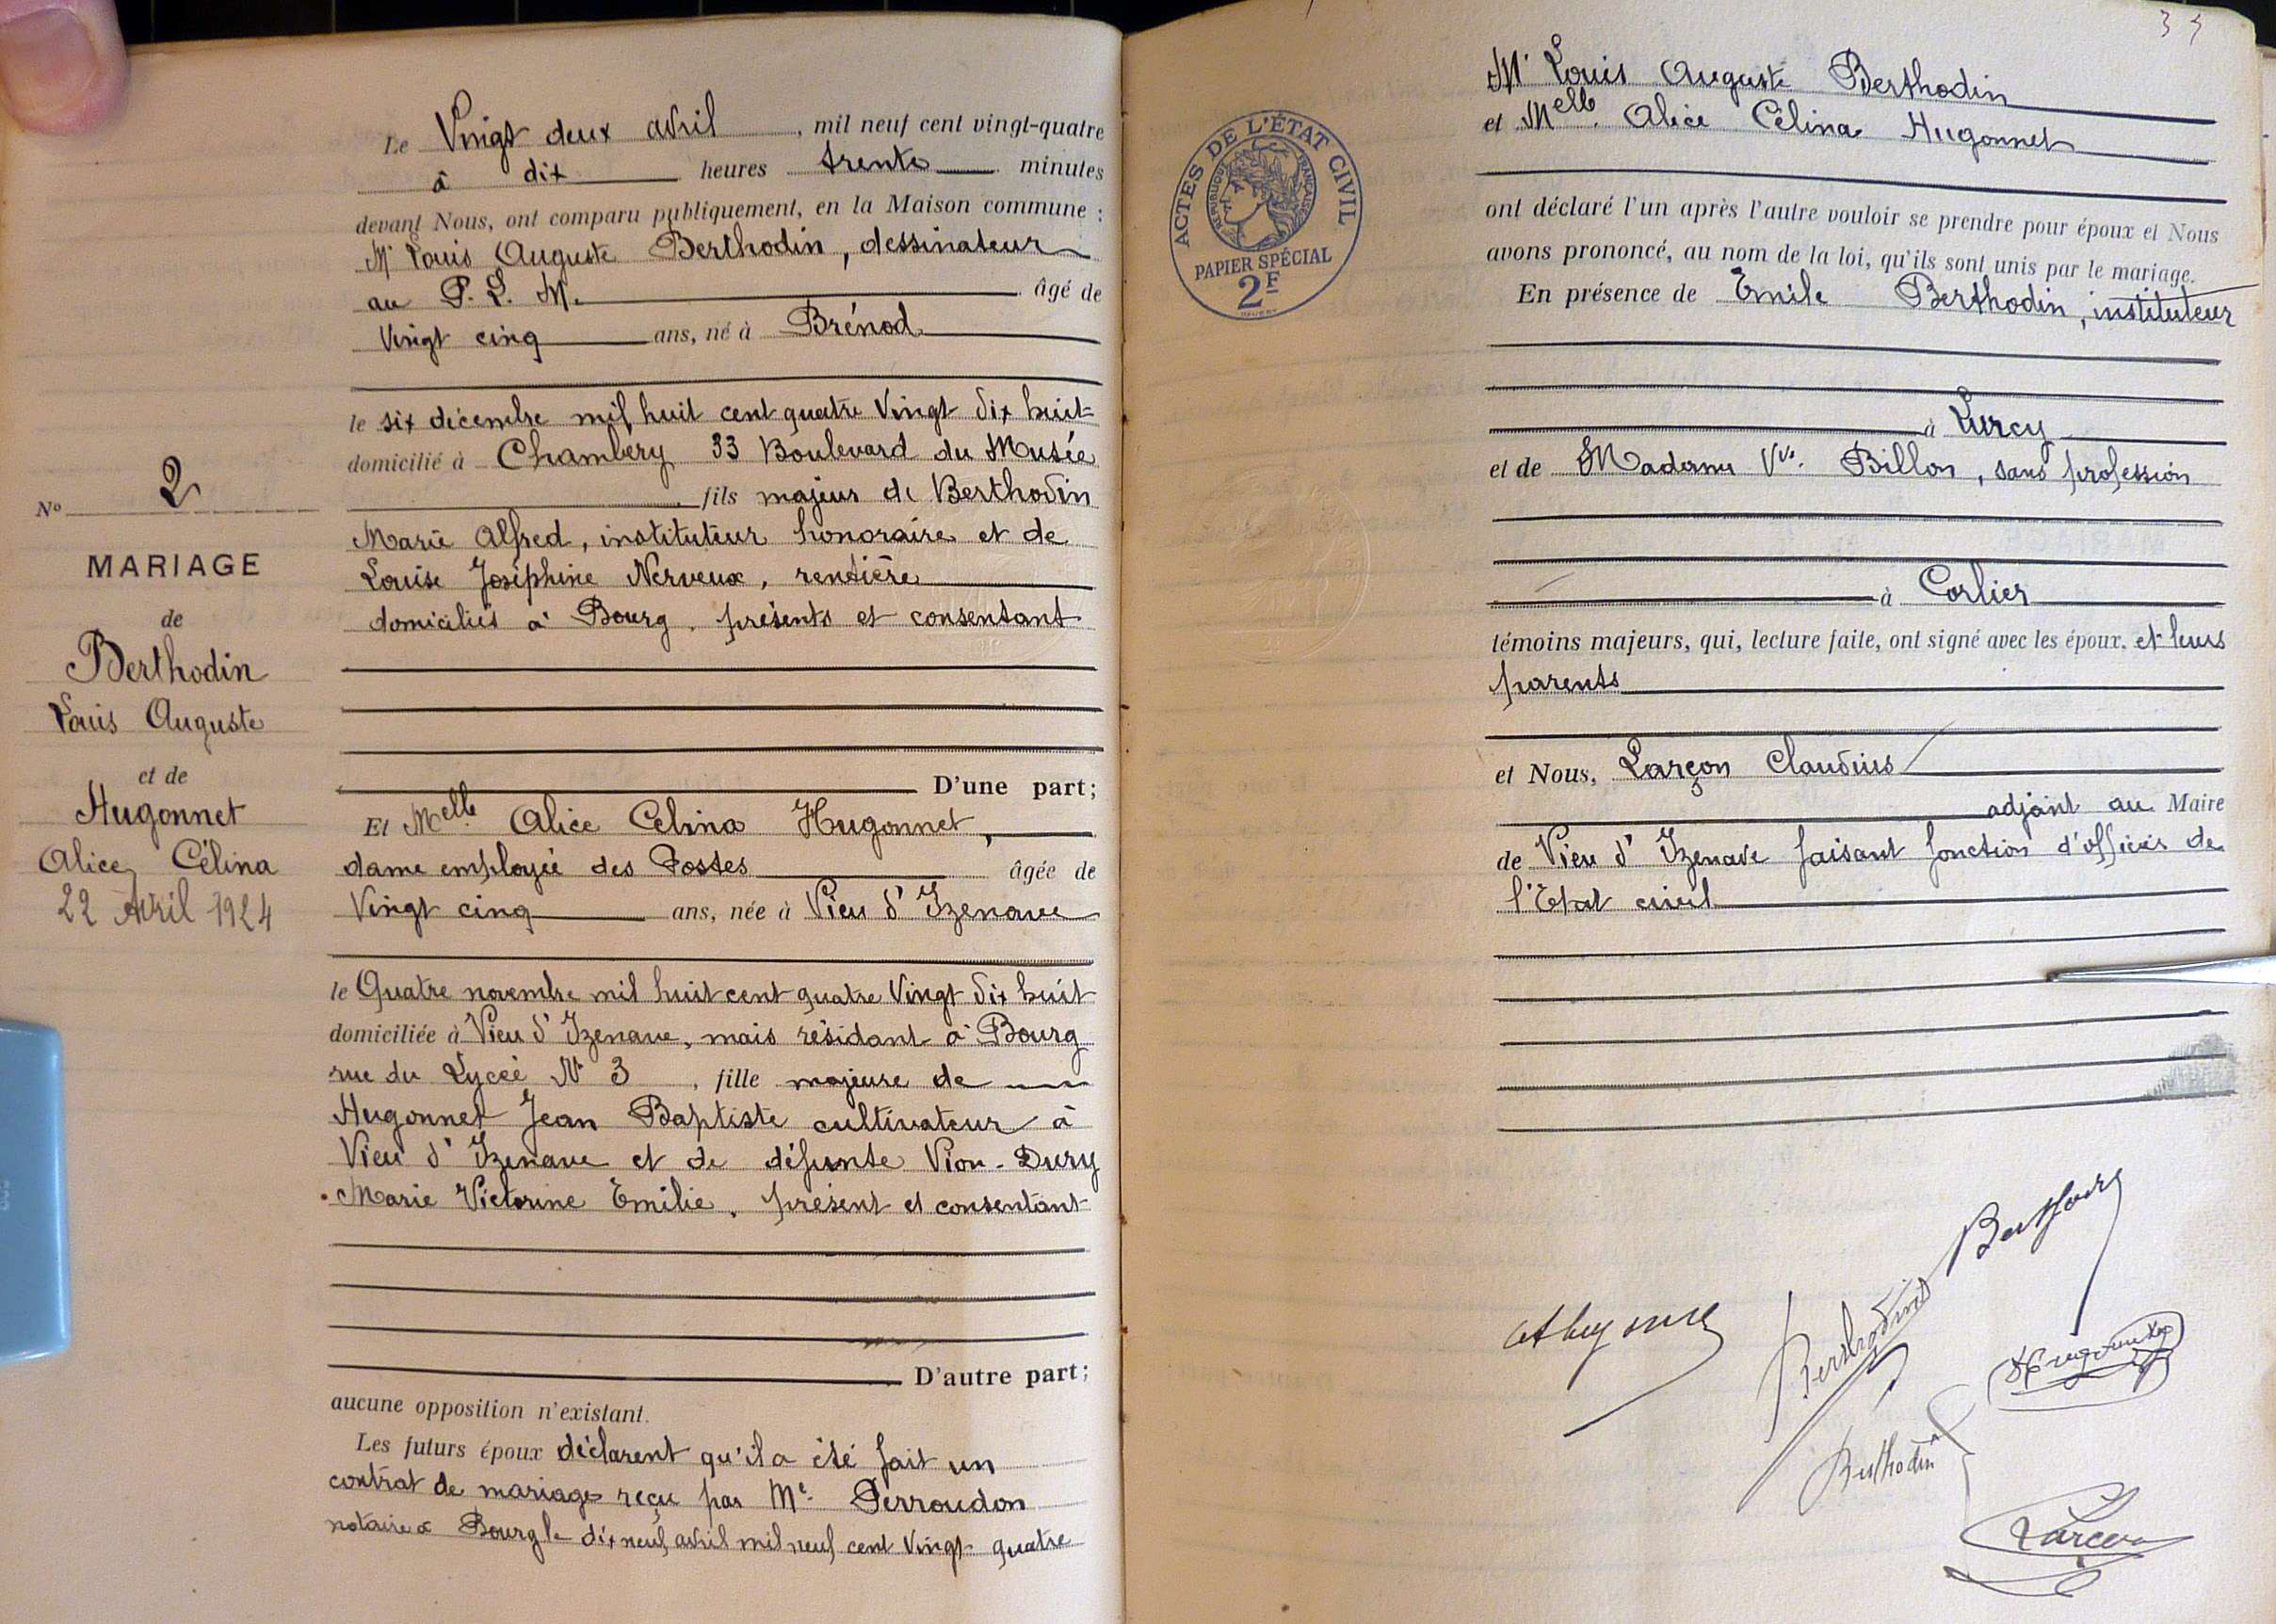 Le Vingt deux avril, mil neuf cent vingt-quatre
à dix heures trente minutes
devant Nous, ont comparu publiquement, en la Maison commune :
Mr Louis Auguste Berthodin, dessinateur
au P. L. M. âgé de
Vingt cinq ans, né à Brénod
le six décembre mil huit cent quatre Vingt dix huit
domicilié à Chambéry 33 Boulevard du Musée
fils majeur de Berthodin
Marie Alfred, instituteur honoraire et de
Louise Joséphine Nerveux, rentière
domiciliés à Bourg. présents et consentant
D'une part;
Et Melle Alice Célina Hugonnet,
dame employée des Postes âgée de
Vingt cinq ans, née à Vieu d'Izenave
le Quatre novembre mil huit cent quatre Vingt dix huit
domiciliée à Vieu d'Izenave, mais résidant à Bourg
rue du Lycée N° 3, fille majeure de
Hugonnet Jean Baptiste cultivateur à
Vieu d'Izenave et de défunte Vion-Dury
Marie Victorine Emilie. présent et consentant
D'autre part;
aucune opposition n'existant.
Les futurs époux déclarent qu'il a été fait un
contrat de mariage reçu par Me Perroudon
notaire à Bourg le dix neuf avril mil neuf cent Vingt quatre
No 2
MARIAGE
de
Berthodin
Louis Auguste
et de
Hugonnet
Alice, Célina
22 Avril 1924
Mr Louis Auguste Berthodin
et Melle Alice Célina Hugonnet
ont déclaré l'un après l'autre vouloir se prendre pour époux et Nous
avons prononcé, au nom de la loi, qu'ils sont unis par le mariage.
En présence de Emile Berthodin, instituteur
à Lurcy
et de Madame Vve Billon, sans profession
à Corlier
témoins majeurs, qui, lecture faite, ont signé avec les époux. et leurs
parents
et Nous, Larçon Claudius
adjoint au Maire
de Vieu d'Izenave faisant fonction d'officier de
l'Etat civil
ACTES DE L'ÉTAT CIVIL
RÉPUBLIQUE FRANÇAISE
PAPIER SPÉCIAL
2F
Berthodin
Hugonnet
Berthodin
Larçon